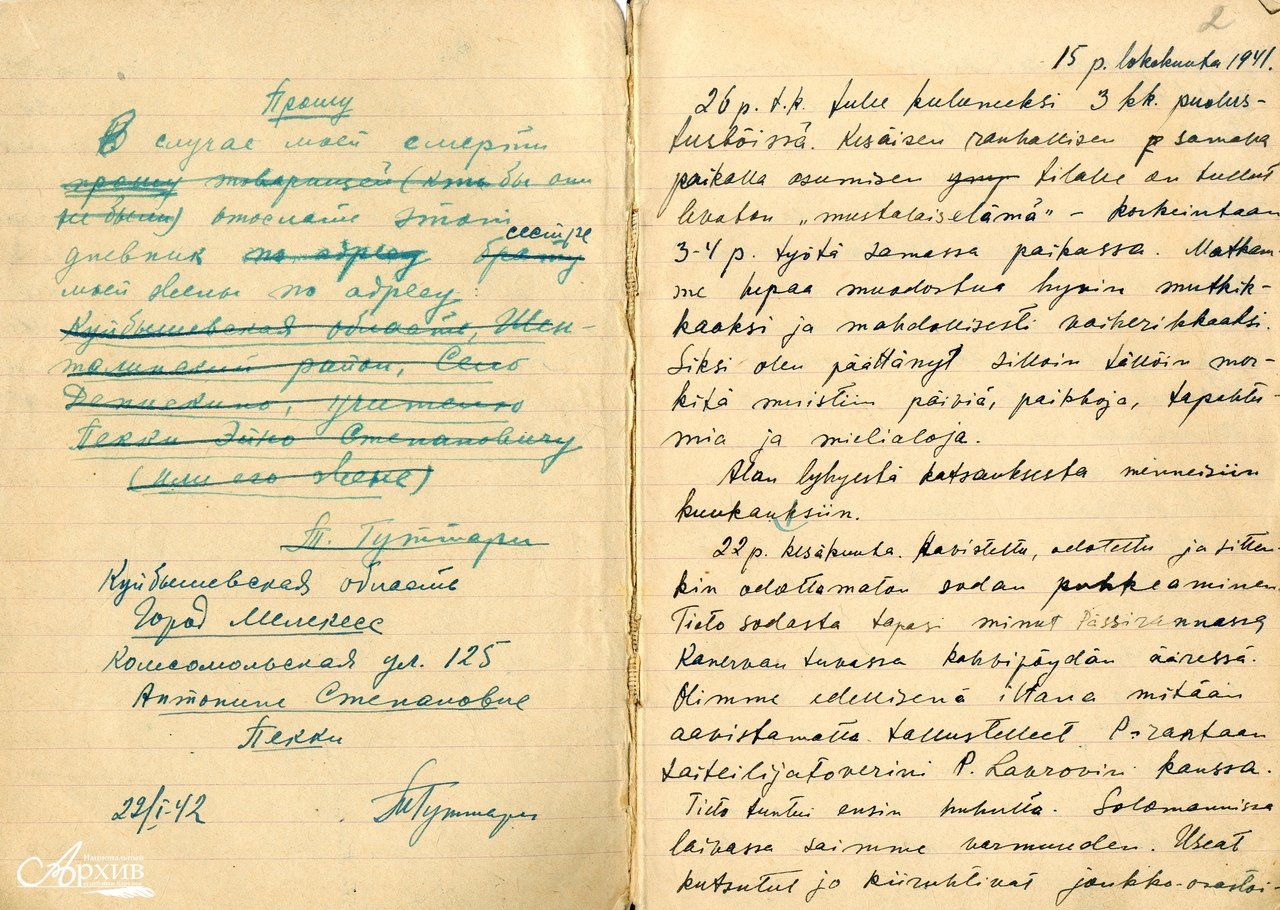 Прошу
В случае моей смерти
прошу товарищей (кто бы они
не были) отослать этот
сестре
дневник по адресу брату
моей жены по адресу:
Куйбышевская область, Шен-
талинский район, Село
Денискино, учителю
Пекки Эйно Степановичу
(или его жене)
Т. Гуттари
Куйбышевская область
Город Мелекесс
Комсомольская ул. 125
Антонине Степановне
Пекки
22/I-42 ТГуттари
Национальный
Архив
2
15 p. lokakuuta 1941.
26 p. t.k. tulee kuluneeksi 3 kk. puolus-
tustöissä. Kesäisen rauhallisen samalla
paikalla asumisen tilalle on tullut
levoton „mustalaiselämä" - korkeintaan
3-4 p. työtä samassa paikassa. Matkam-
me lupaa muodostua hyvin mutkik-
kaaksi ja mahdollisesti vaiherikkaaksi.
Siksi olen päättänyt silloin tällöin mer-
kitä muistiin päiviä, paikkoja, tapahtu-
mia ja mielialoja.
Alan lyhyestä katsauksesta menneisiin
kuukauksiin.
22 p. kesäkuuta. Aavistettu, odotettu ja sitten-
kin odottamaton sodan puhkeaminen.
Tieto sodasta tapasi minut Pässirannassa
Kanervan tuvassa kahvipöydän ääressä.
Olimme edellisenä iltana mitään
aavistamatta tallustelleet P-rantaan
taiteilijatoverini P. Lavrovin kanssa.
Tieto tuntui ensin huhulta. Solomannissa
laivassa saimme varmuuden. Useat
kutsutut jo kiiruhtivat joukko-osastoi-